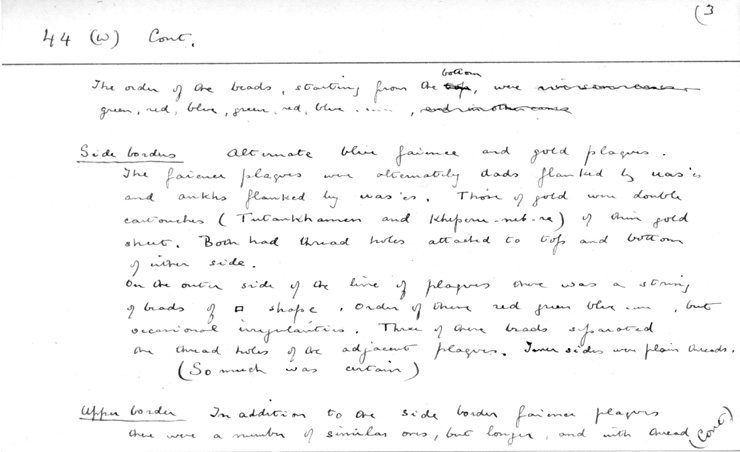 (3
44 (W) Cont.
The order of the beads, starting from the bottom, were
green, red, blue, green, red, blue ......, and in other cases
Side borders Alternate blue faience and gold plaques.
The faience plaques were alternately dads flanked by uas's
and ankhs flanked by uas'es. Those of gold were double
cartouches (Tutankhamen and Kheperu-neb-re) of thin gold
sheet. Both had thread holes attached to tops and bottom
of either side.
On the outer side of the line of plaques there was a string
of beads of □ shape. Order of these red green blue ...., but
occasional irregularities. Three of these beads separated
the thread holes of the adjacent plaques. Inner sides were plain threads.
(So much was certain)
Upper border In addition to the side border faience plaques
there were a number of similar ones, but longer, and with thread (Cont)